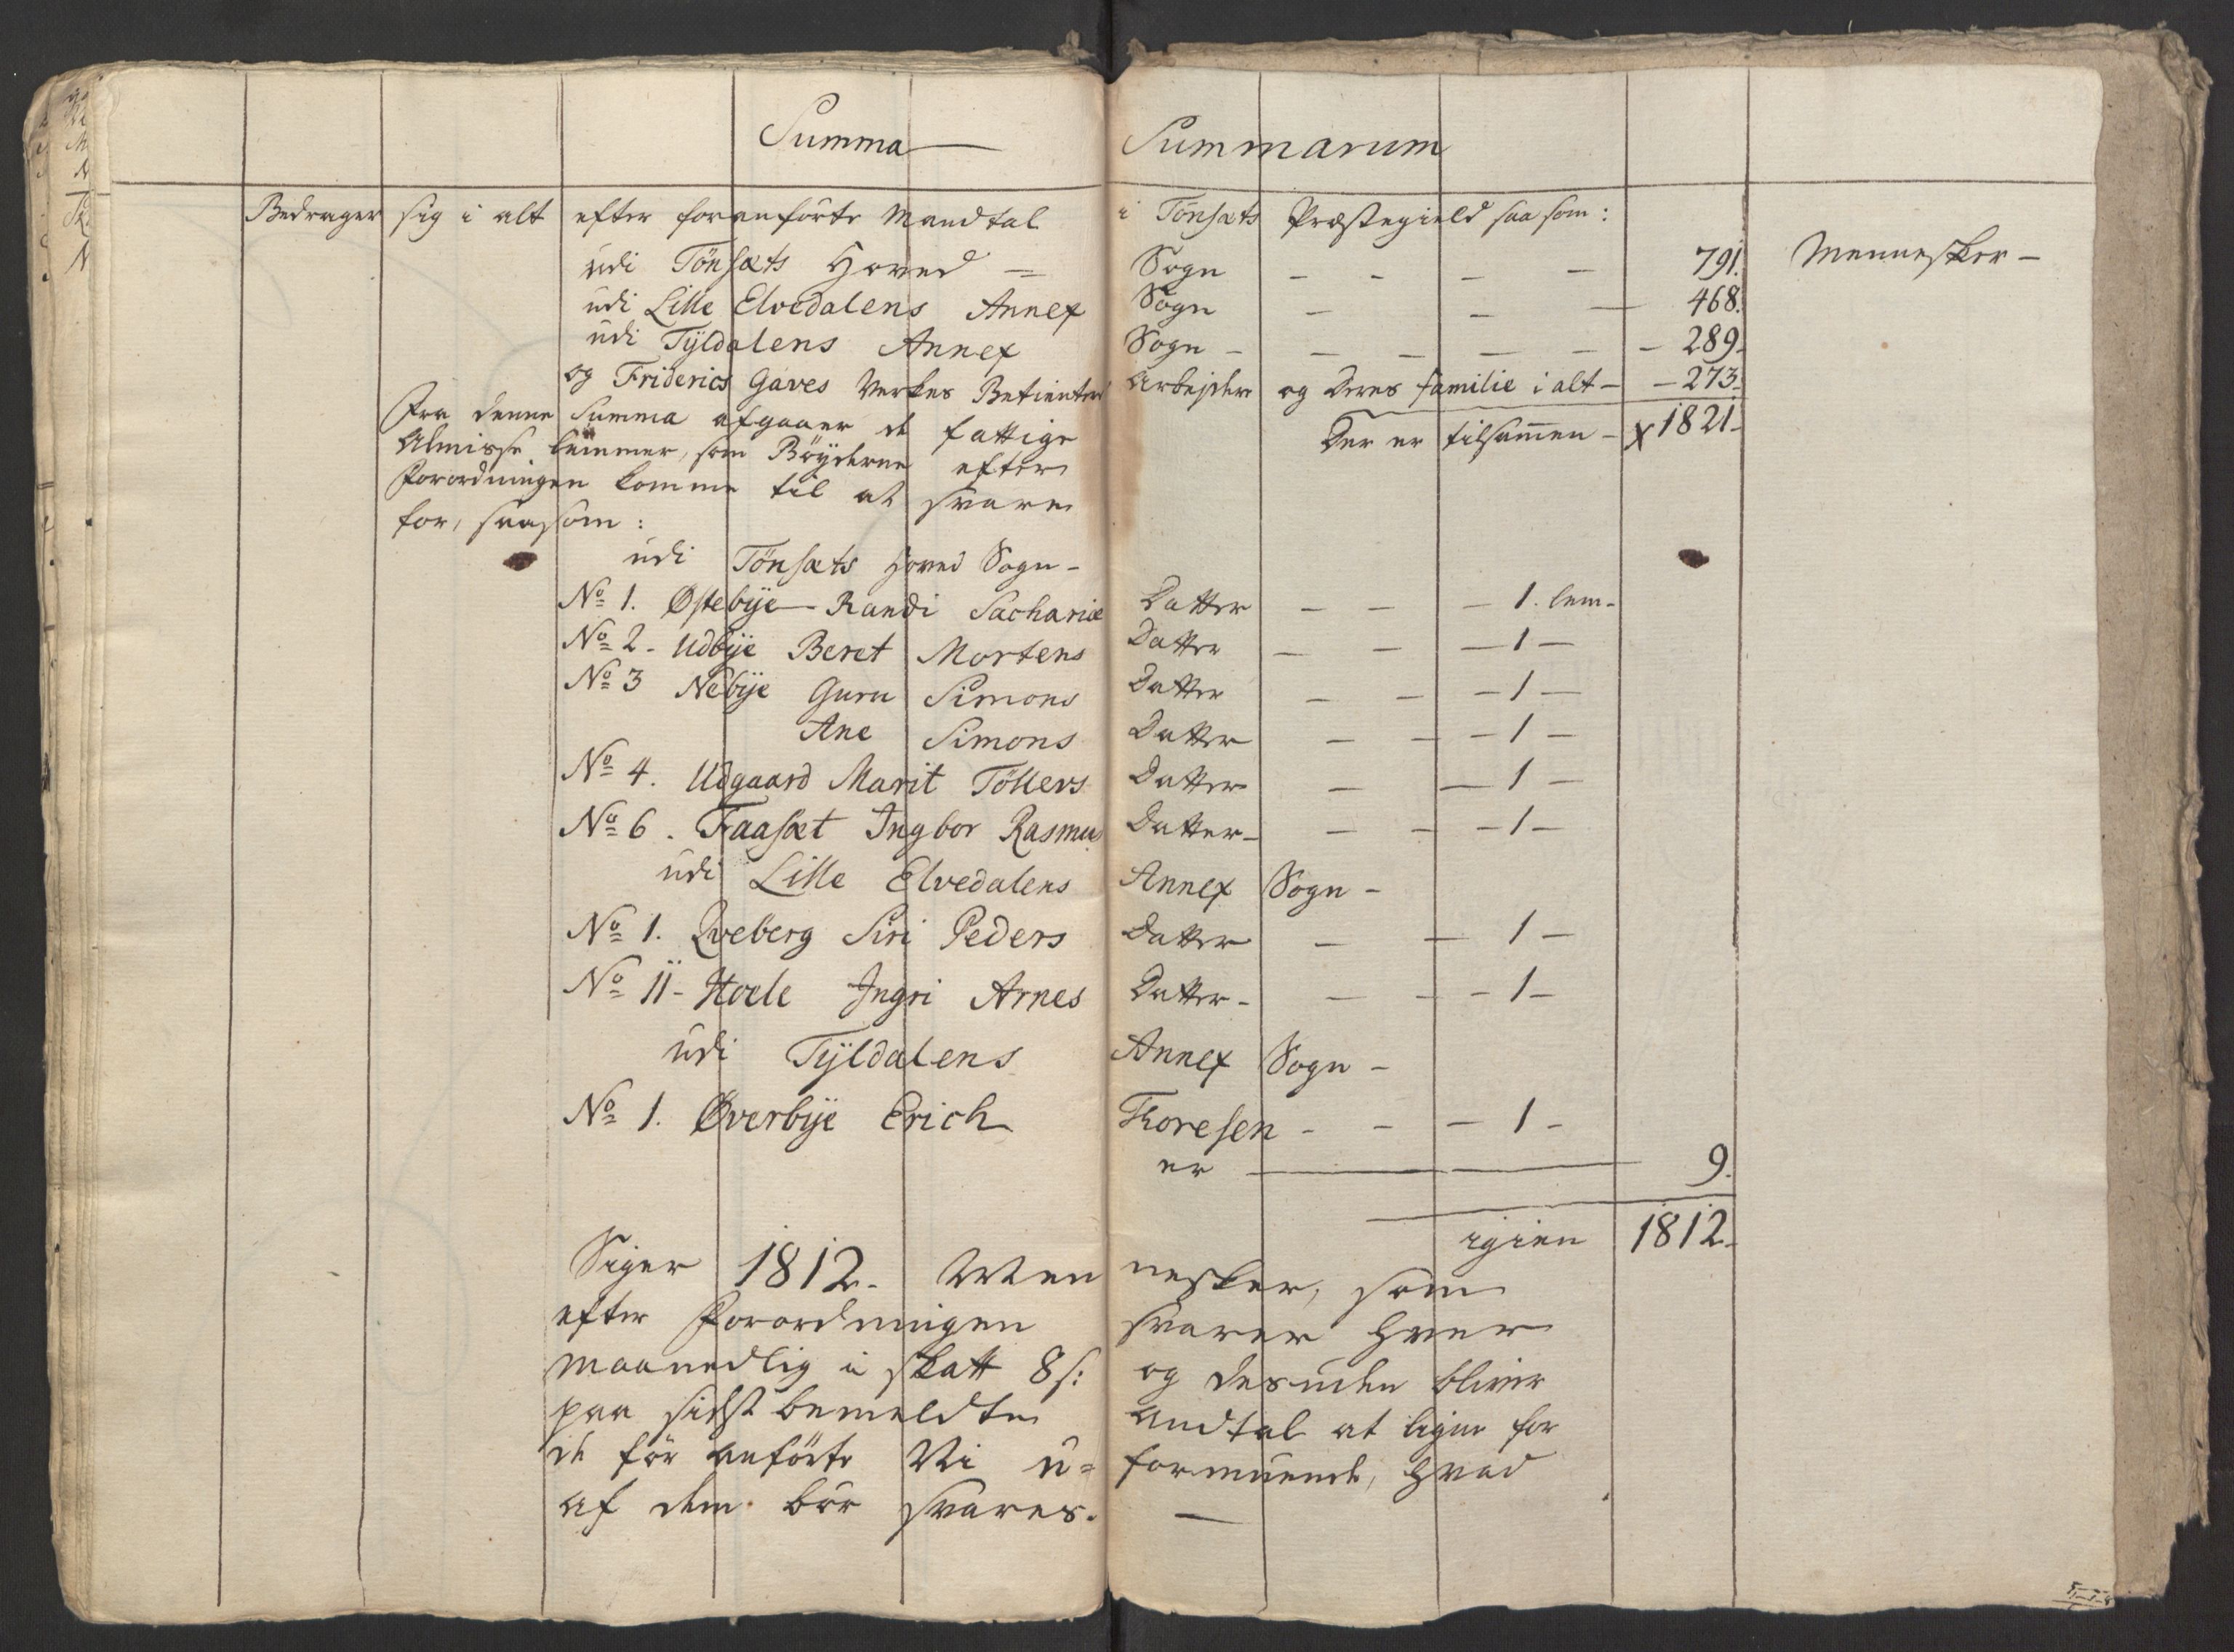 Summa — Summarum
Bedrager sig i alt efter foranførte Mandtal i Tönsæts Præstegield saasom:
udi Tönsæts Hoved = Sogn - - - - 791. Mennesker -
udi Lille Elvedalens Annex Sogn - - - 468.
udi Tÿldalens Annex Sogn - - - - - - 289.
og Friderics Gaves Verkes Betienter Arbejder og Deres familie i alt - - 273.
Der er tilsam̄en - x 1821.
Fra denne Summa afgaaer de fattige
Almisse lemmer, som Böyderne efter
Forordningen komme til at svare
for, saasom:
udi Tönsæts Hoved Sogn -
No 1. Østebÿe - Randi Sachariæ Datter - - - 1. lem -
No 2 - Udbÿe Beret Mortens Datter - - - 1 -
No 3 Nebÿe Guru Simons Datter - - - 1 -
Ane Simons Datter - - - 1 -
No 4. Udgaard Marit Töllers Datter - - 1 -
No 6. Faasæt Ingbor Rasmus Datter - - - - 1 -
udi Lille Elvedalens Annex Sogn -
No 1. Qveberg Siri Peders Datter - - 1 -
No 11 - Hoele Ingri Arnes Datter - - - - 1 -
udi Tÿldalens Annex Sogn -
No 1. Øverbÿe Erich Thoresen - - - 1 -
er — — 9.
igien 1812.
Siger 1812. Mennesker, som
efter Forordningen svarer hver
maanedlig i skatt 8 s: og desuden bliver
paa sidst bemeldte andtal at ligne for
de för anförte Ni u= formuende, hvad
af dem bör svares. —